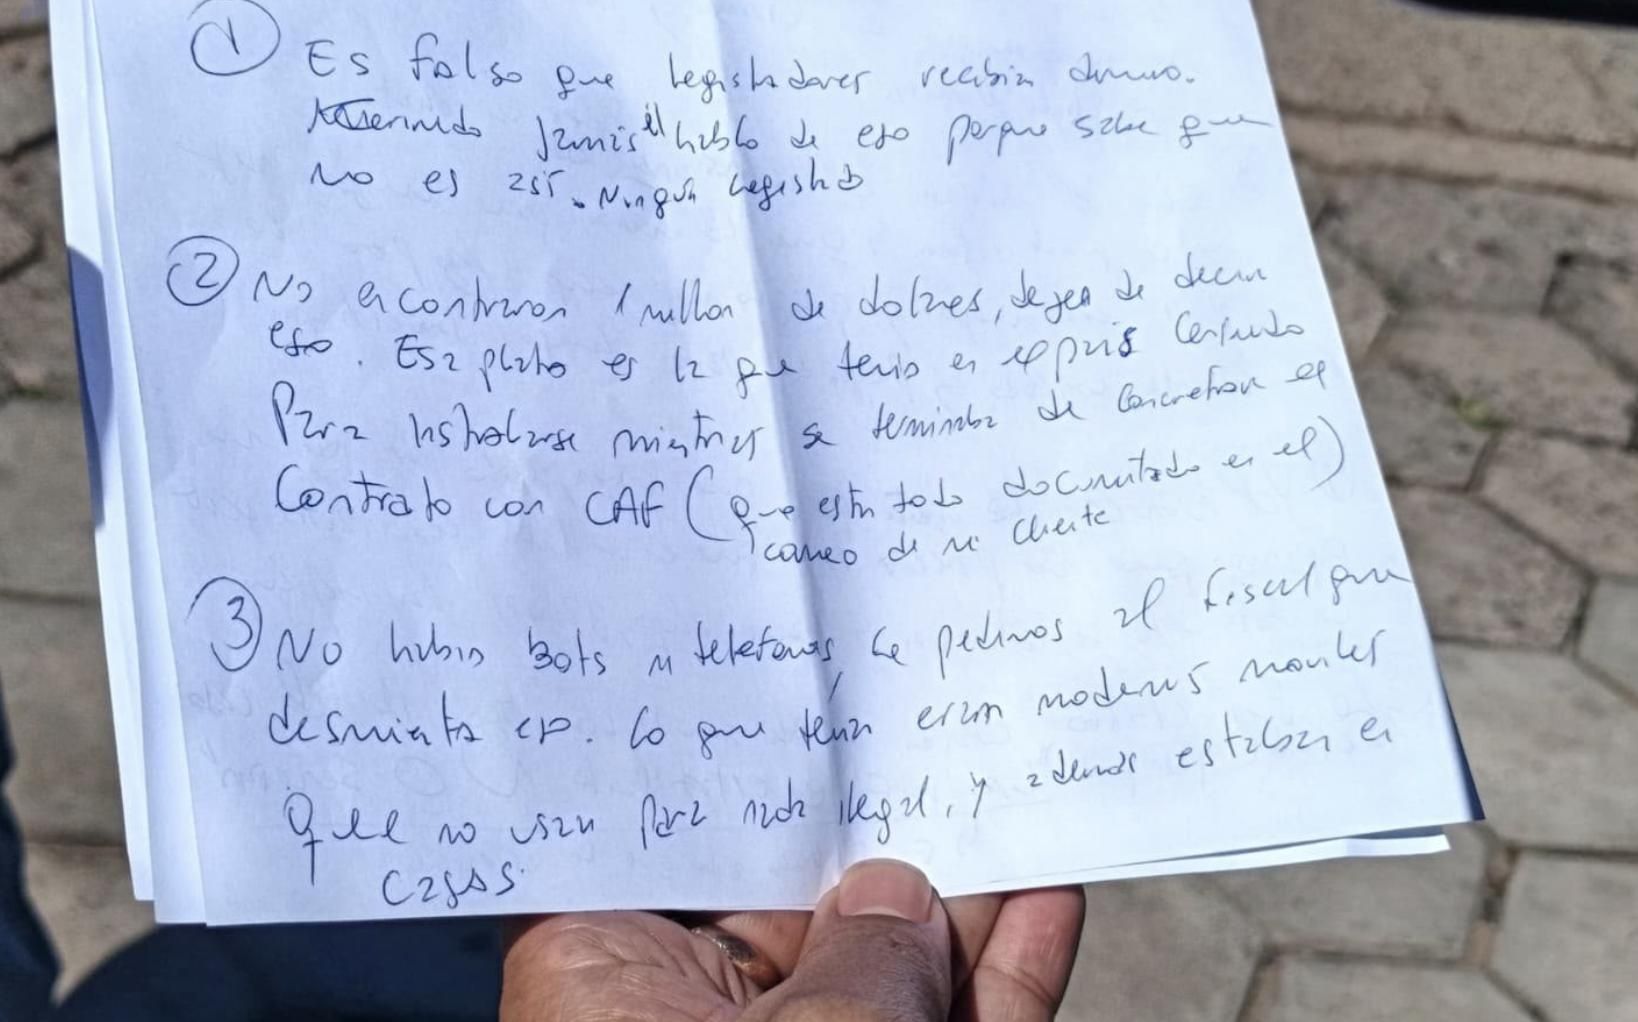 1
Es falso que legisladores recibian dinero.
Jamás él hablo de eso porque sabe que
no es así. Ningún legislad
2 No encontraron 1 millon de dolares, dejen de decir
eso. Esa plata es la que tenia en el país
Para instalarse mientras se terminaba de concretar el
Contrato con CAF (que esta todo documentado en el)
correo de mi cliente
3 No habia Bots ni telefonos, le pedimos al fiscal que
desmienta eso. Lo que tenian eran modems moviles
que no usan para nada ilegal, y ademas estaban en
cajas.